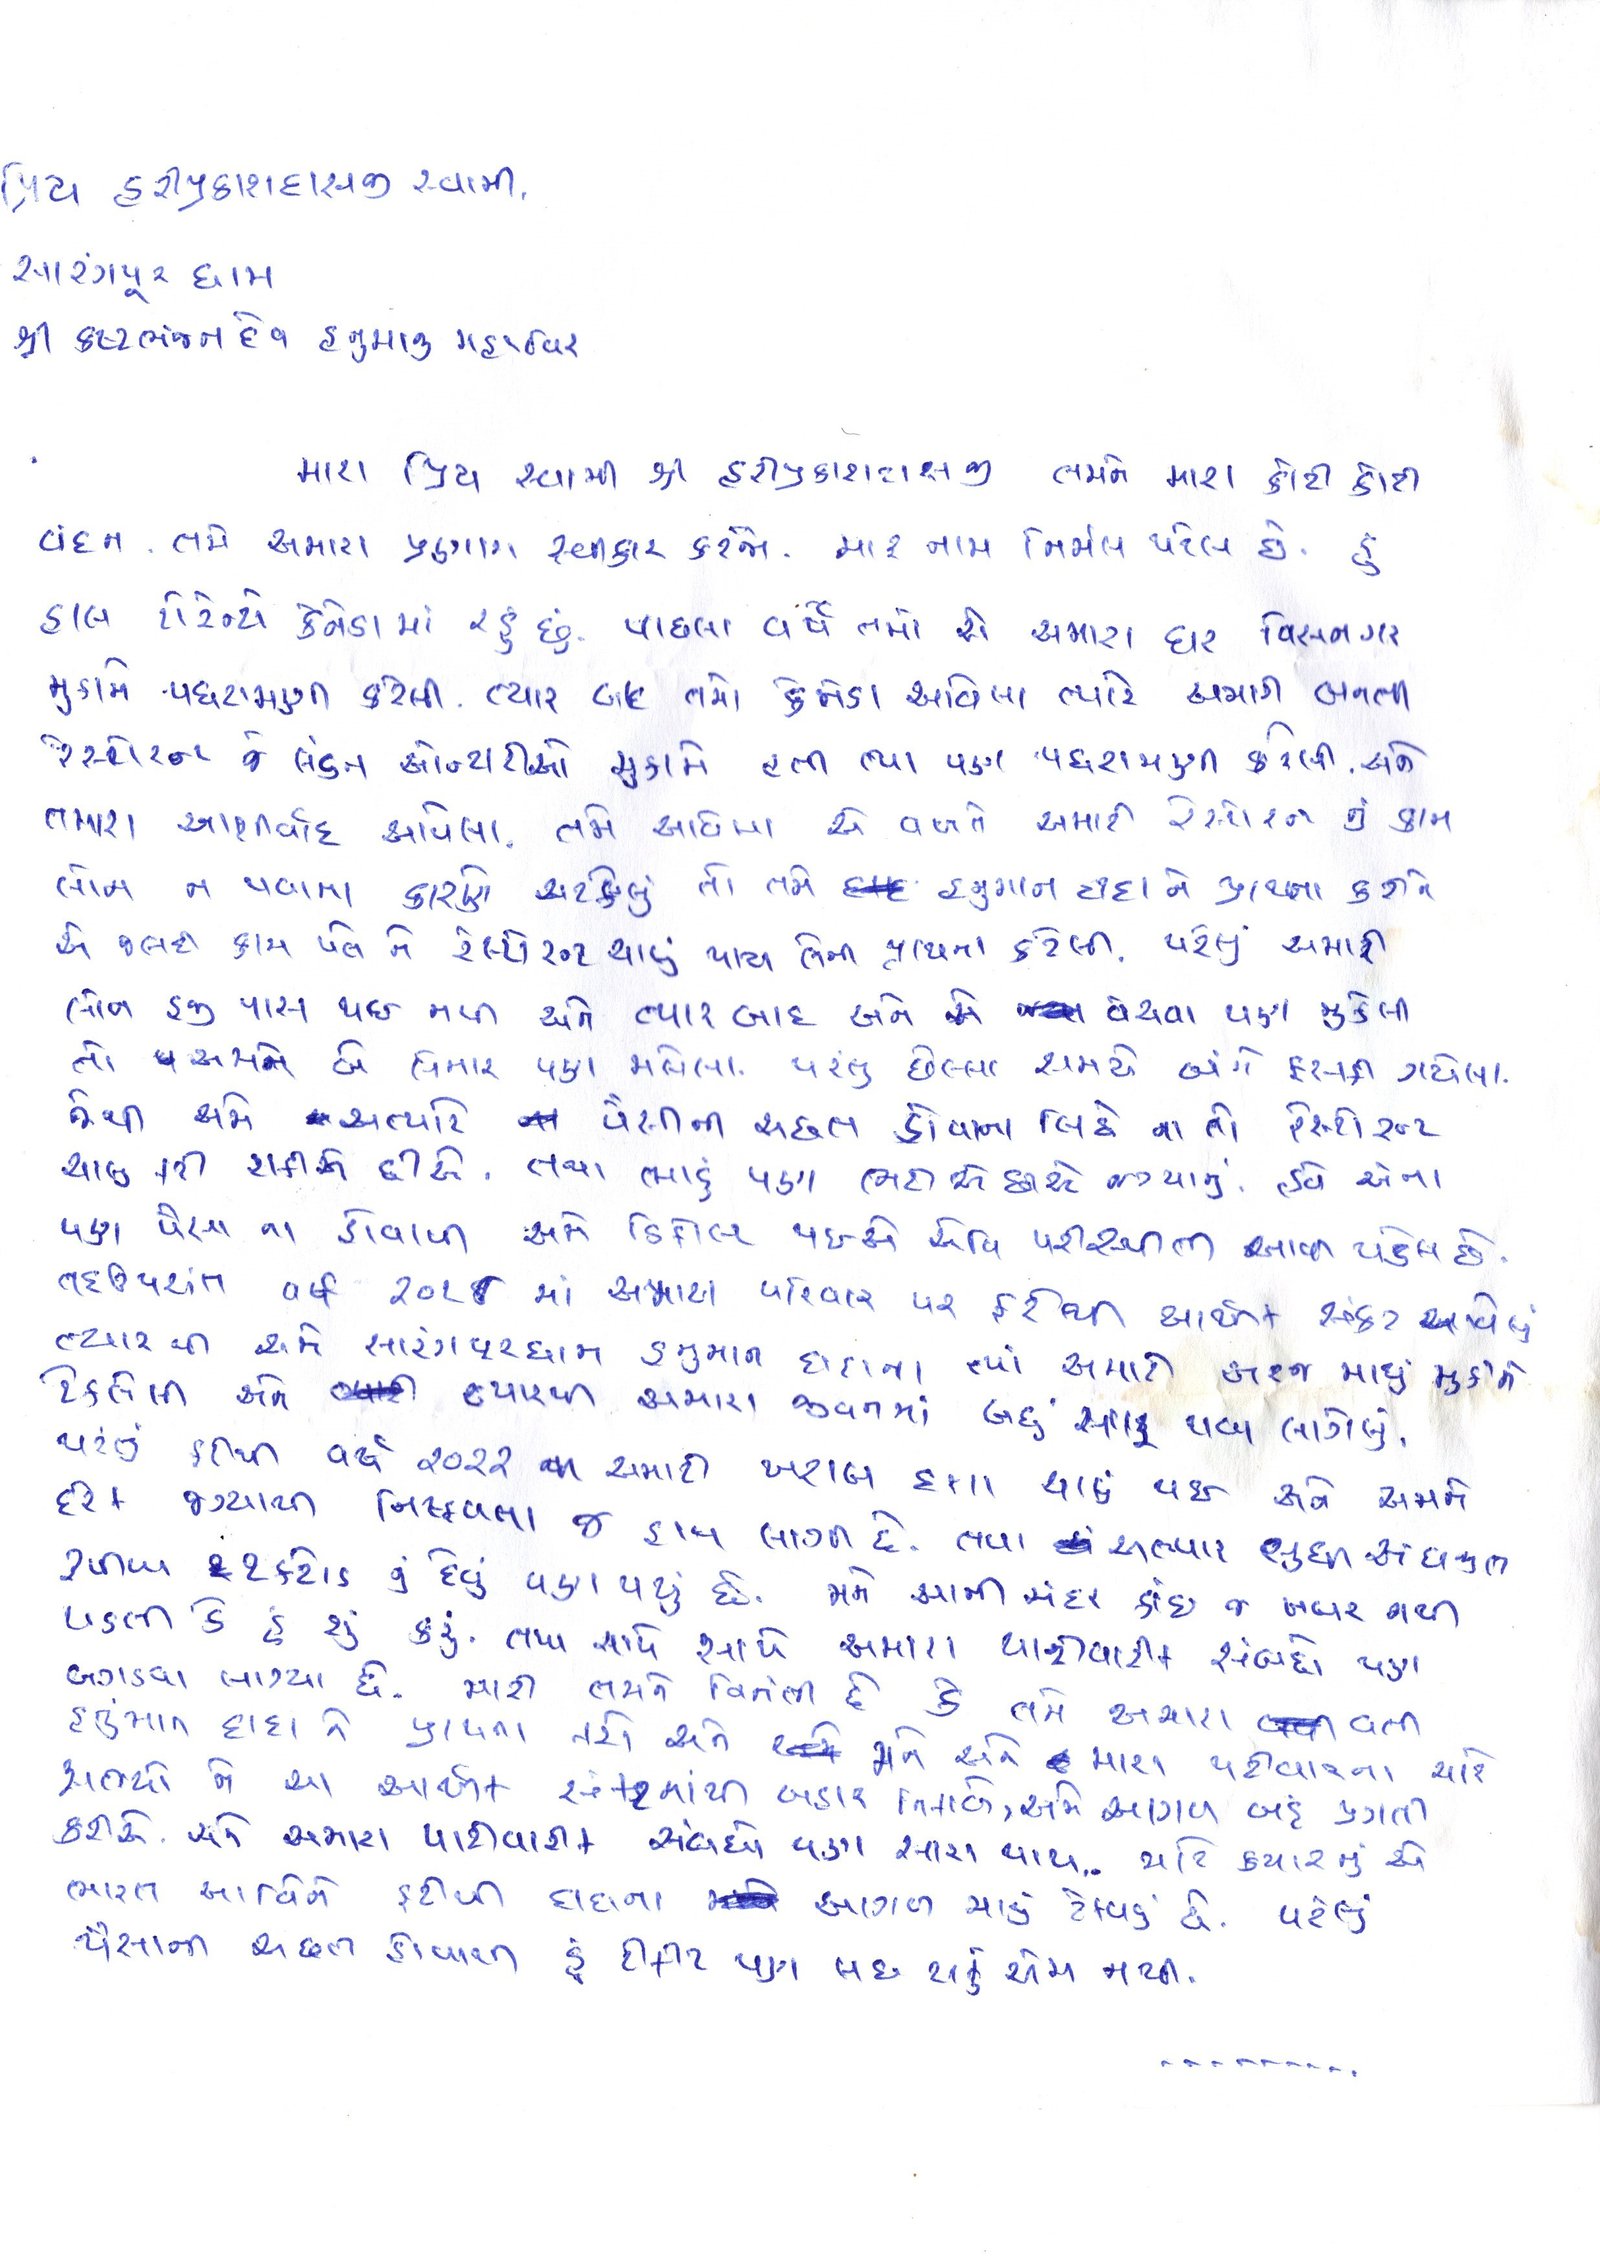 પ્રિય હરીપ્રકાશદાસજી સ્વામી.
સારંગપૂર ધામ
શ્રી કષ્ટભંજન દેવ હનુમાજી
મારા પ્રિય સ્વામી શ્રી હરીપ્રકાશદાસજી તમને મારા કોટી કોટી
વંદન. તમે અમારા પ્રણામ સ્વીકાર કરજો. માર નામ નિર્મલ પટેલ છે. હું
હાલ ટોરેન્ટો કેનેડા માં રહું છું. પાછલા વર્ષે તમો એ અમારા ઘર વિસનગર
મુકામે પધરામણી કરેલી. ત્યાર બાદ તમો કેનેડા આવેલા ત્યારે અમારી બનતી
રેસ્ટોરન્ટ જે લંડન ઓન્ટારીઓ મુકામે હતી ત્યા પણ પધરામણી કરેલી. અને
તમારા આશીર્વાદ આપેલા. તમે આવેલા એ વખતે અમારી રેસ્ટોરન્ટ નું કામ
લોન ન થવાના કારણે અટકેલું તો તમે હનુમાન દાદા ને પ્રાથના કરીને
એ જલદી કામ પતે ને રેસ્ટોરન્ટ ચાલું થાય તેની પ્રાથના કરેલી. પરંતું અમારી
લોન હજી પાસ થઇ નથી અને ત્યાર બાદ અને એ વેચવા પણ મુકેલી
તો અમને બે લેનાર પણ મળેલા. પરંતુ છેલ્લા સમયે બંને ફરી ગયેલા.
જેથી અમે અત્યારે પૈસાની અછત હોવાના લિધે ના તો રેસ્ટોરન્ટ
ચાલુ કરી શકીએ છીએ. તથા ભાડું પણ ભરીએ છીએ જગ્યાનું. હવે એના
પણ પૈસા ના હોવાથી અમે ડિફોલ્ટ થઇએ એવિ પરીસ્થીતી આવી પડેલ છે.
તદઉપરાંત વર્ષ માં અમારા પરિવાર પર ફરીથી આર્થીક સંકટ આવેલું
ત્યારથી અમે સારંગપૂરધામ હનુમાન દાદાના ત્યાં અમારી અરજ માથું મુકીને
ટેકવેલી અને ત્યારથી અમારા જીવનમાં બધું સારૂ થવા લાગેલું.
પરંતું ફરીથી વર્ષ ૨૦૨૨ અમારી ખરાબ દશા ચાલું થઇ અને અમને
દરેક જગ્યાથી નિષ્ફળતા જ હાથ લાગી છે. તથા અત્યાર સુધી
નું દેવું પણ થયું છે. મને આની અંદર કાંઇ જ ખબર નથી
પડતી કે હું શું કરું. તથા સાથે સાથે અમારા પારીવારીક સંબધો પણ
બગડવા લાગ્યા છે. મારી તમને વિનંતી છે કે તમે અમારા વતી
હનુંમાન દાદા ને પ્રાથના કરો અને મને અને મારા પરીવારના
સભ્યો ને આ આર્થીક સંકટમાંથી બહાર નિકાળે, અમે આગળ બહુ પ્રગતી
કરીએ. અને અમારા પારીવારીક સંબધો પણ સારા થાય. મારે ક્યારનું એ
ભારત આવિને ફરીથી દાદાના આગળ માથું ટેકવવું છે. પરંતું
પૈસાની અછત હોવાથી હું ટીકીટ પણ લઇ શકું એમ નથી.